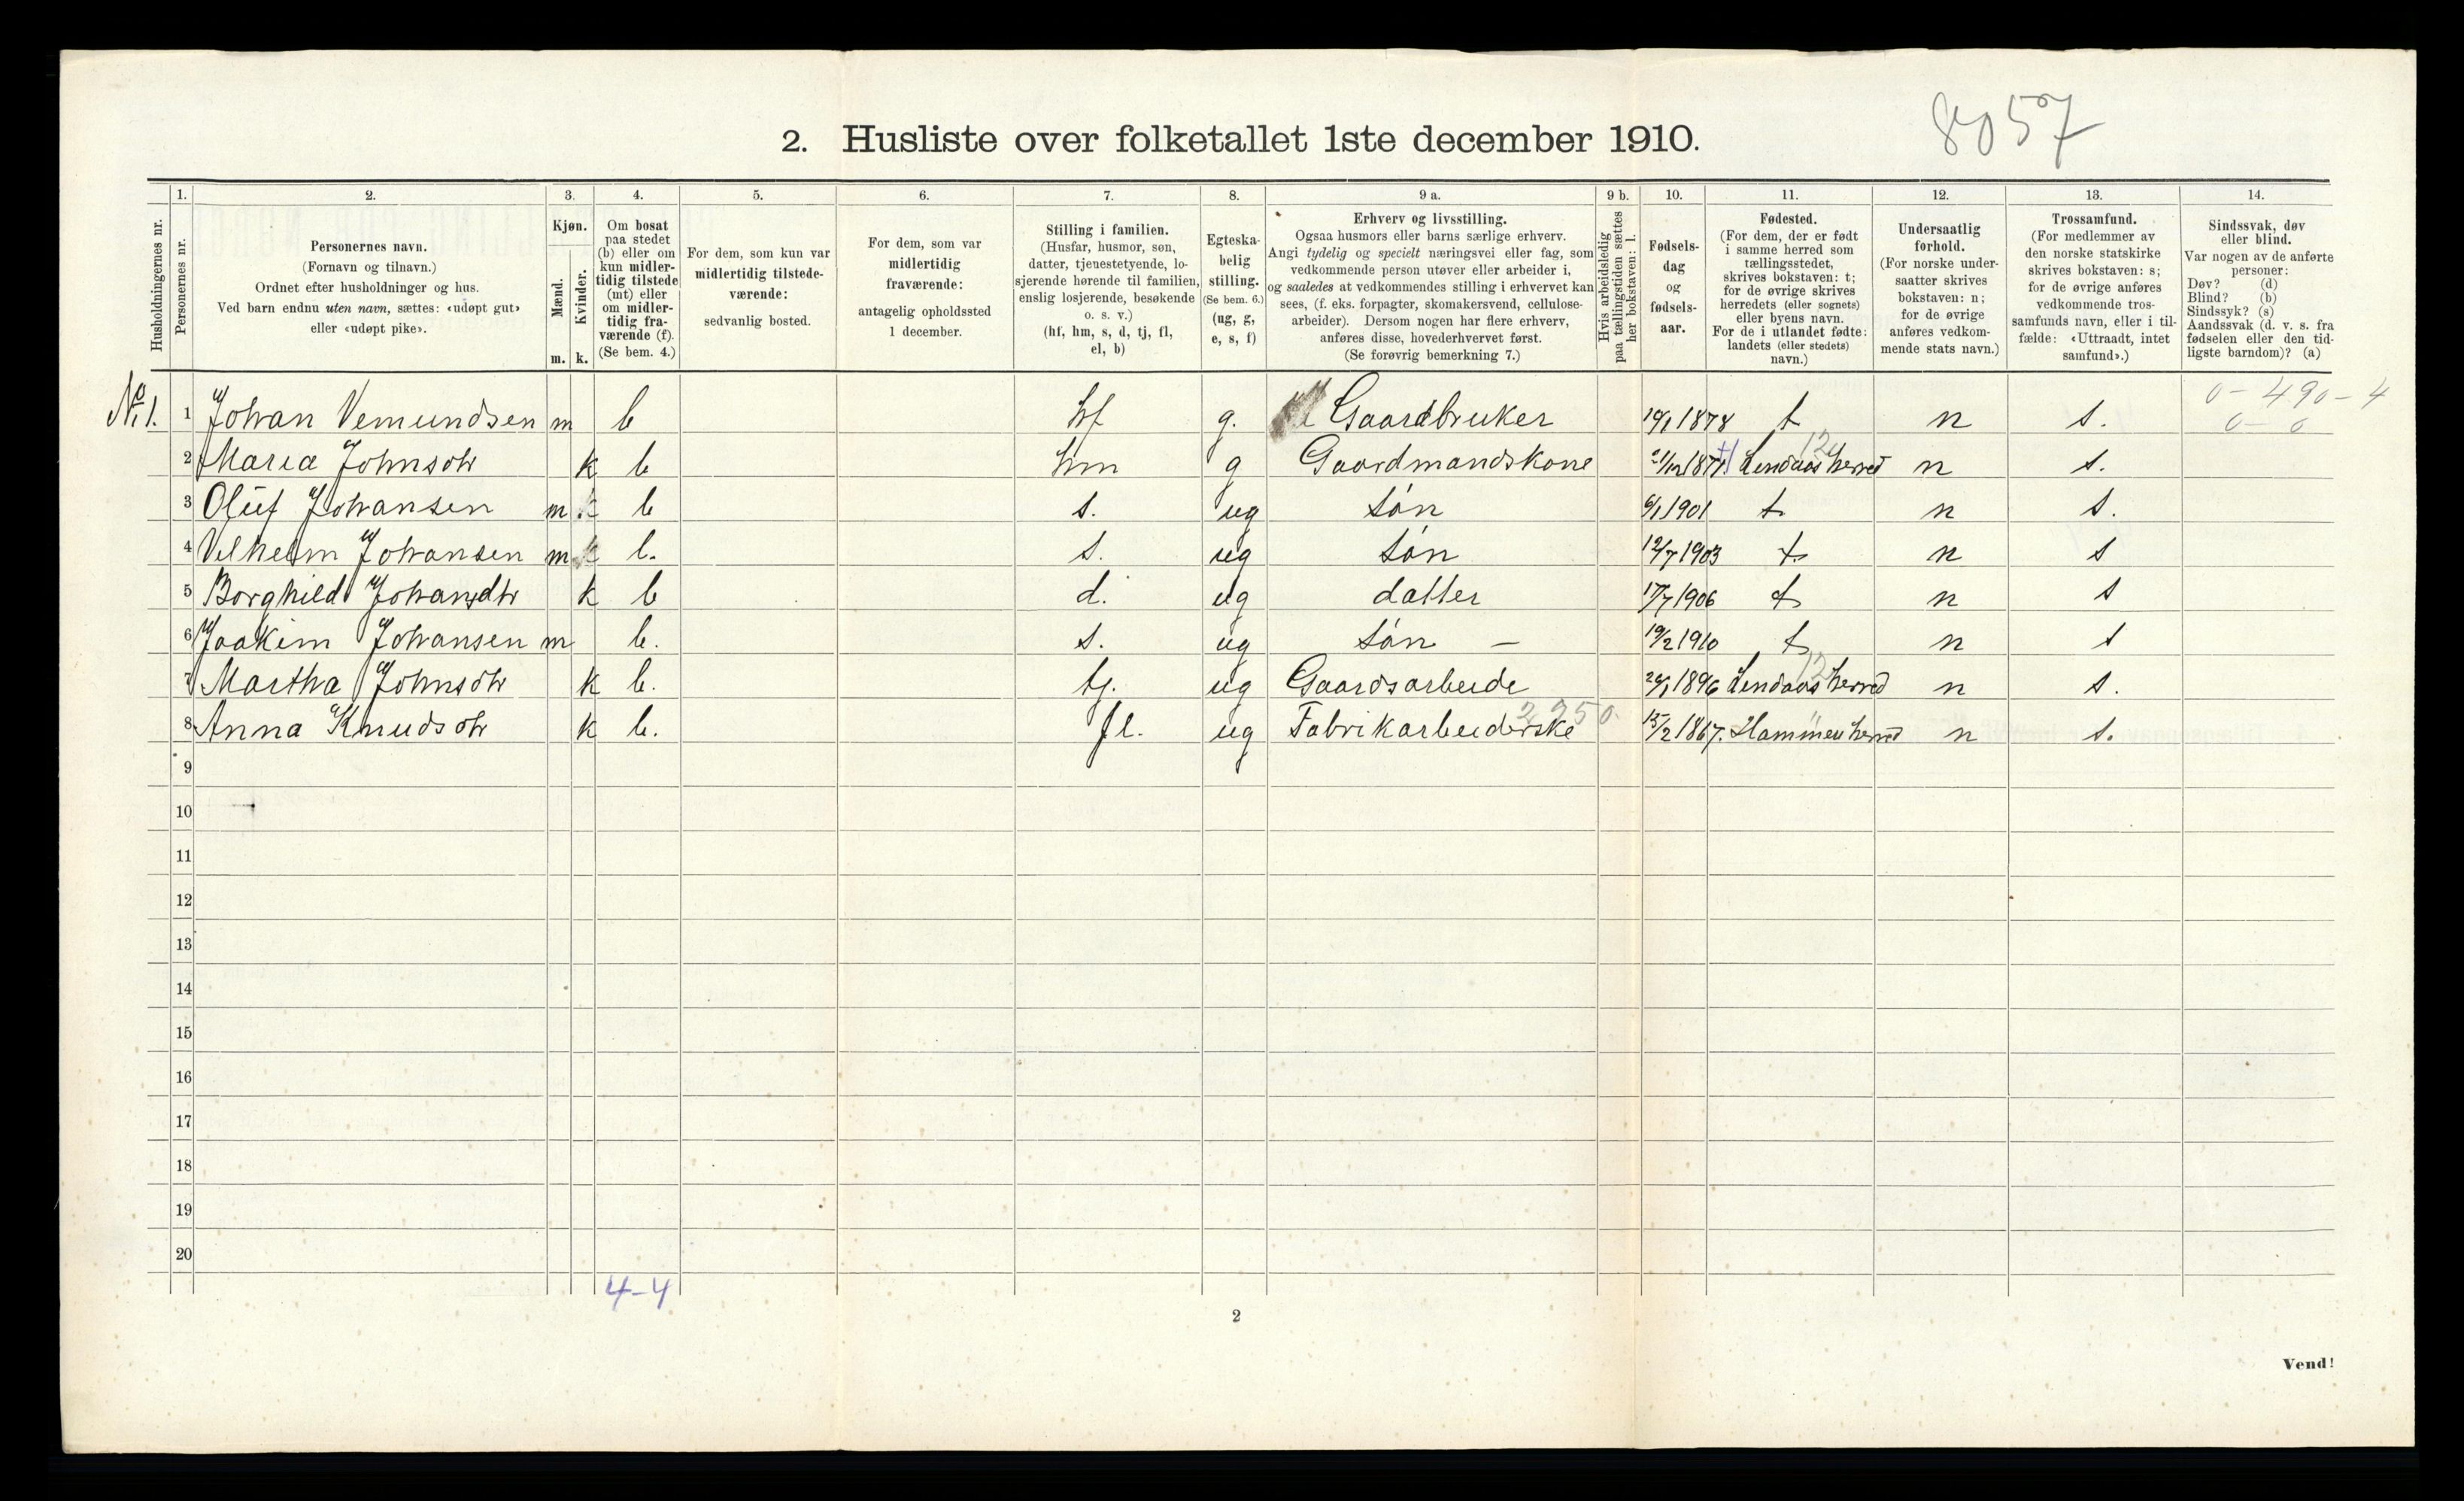 8057
2. Husliste over folketallet 1ste december 1910.
1. 2. 3. 4. 5. 6. 7. 8. 9 a. 9 b. 10. 11. 12. 13. 14.
Husholdningernes nr.
Personernes nr.
Personernes navn.
(Fornavn og tilnavn.)
Ordnet efter husholdninger og hus.
Ved barn endnu uten navn, sættes: «udøpt gut»
eller «udøpt pike».
Kjøn.
Mænd.
Kvinder.
m. k.
Om bosat
paa stedet
(b) eller om
kun midler-
tidig tilstede
(mt) eller
om midler-
tidig fra-
værende (f).
(Se bem. 4.)
For dem, som kun var
midlertidig tilstede-
værende:
sedvanlig bosted.
For dem, som var
midlertidig
fraværende:
antagelig opholdssted
1 december.
Stilling i familien.
(Husfar, husmor, søn,
datter, tjenestetyende, lo-
sjerende hørende til familien,
enslig losjerende, besøkende
o. s. v.)
(hf, hm, s, d, tj, fl,
el, b)
Egteska-
belig
stilling.
(Se bem. 6.)
(ug, g,
e, s, f)
Erhverv og livsstilling.
Ogsaa husmors eller barns særlige erhverv.
Angi tydelig og specielt næringsvei eller fag, som
vedkommende person utøver eller arbeider i,
og saaledes at vedkommendes stilling i erhvervet kan
sees, (f. eks. forpagter, skomakersvend, cellulose-
arbeider). Dersom nogen har flere erhverv,
anføres disse, hovederhvervet først.
(Se forøvrig bemerkning 7.)
Hvis arbeidsledig
paa tællingstiden sættes
her bokstaven: l.
Fødsels-
dag
og
fødsels-
aar.
Fødested.
(For dem, der er født
i samme herred som
tællingsstedet,
skrives bokstaven: t;
for de øvrige skrives
herredets (eller sognets)
eller byens navn.
For de i utlandet fødte:
landets (eller stedets)
navn.)
Undersaatlig
forhold.
(For norske under-
saatter skrives
bokstaven: n;
for de øvrige
anføres vedkom-
mende stats navn.)
Trossamfund.
(For medlemmer av
den norske statskirke
skrives bokstaven: s;
for de øvrige anføres
vedkommende tros-
samfunds navn, eller i til-
fælde: «Uttraadt, intet
samfund».)
Sindssvak, døv
eller blind.
Var nogen av de anførte
personer:
Døv? (d)
Blind? (b)
Sindssyk? (s)
Aandssvak (d. v. s. fra
fødselen eller den tid-
ligste barndom)? (a)
0 - 490 - 4
0 - 0
No 1. 1 Johan Vemundsen m b hf g. Gaardbruker 19/1 1878 t n s.
2 Maria Johnsdtr k b hm g Gaardmandskone 21/12 187 Lindaas herred n s.
3 Oluf Johansen m b s. ug søn 6/1 1901 t n s.
4 Vilhelm Johansen m b. s. ug søn 12/7 1903 t n s
5 Borghild Johansdtr k b d. ug datter 17/7 1906 t n s
6 Joakim Johansen m b. s. ug søn - 19/2 1910 t n s
7 Martha Johnsdtr k b. tj. ug Gaardsarbeide 1896 Lindaas herred n s.
8 Anna Knudsdtr k b. fl. ug Fabrikarbeiderske 15/2 1867. Hammer herred n s.
9
10
11
12
13
14
15
16
17
18
19
20
4-4
2
Vend!